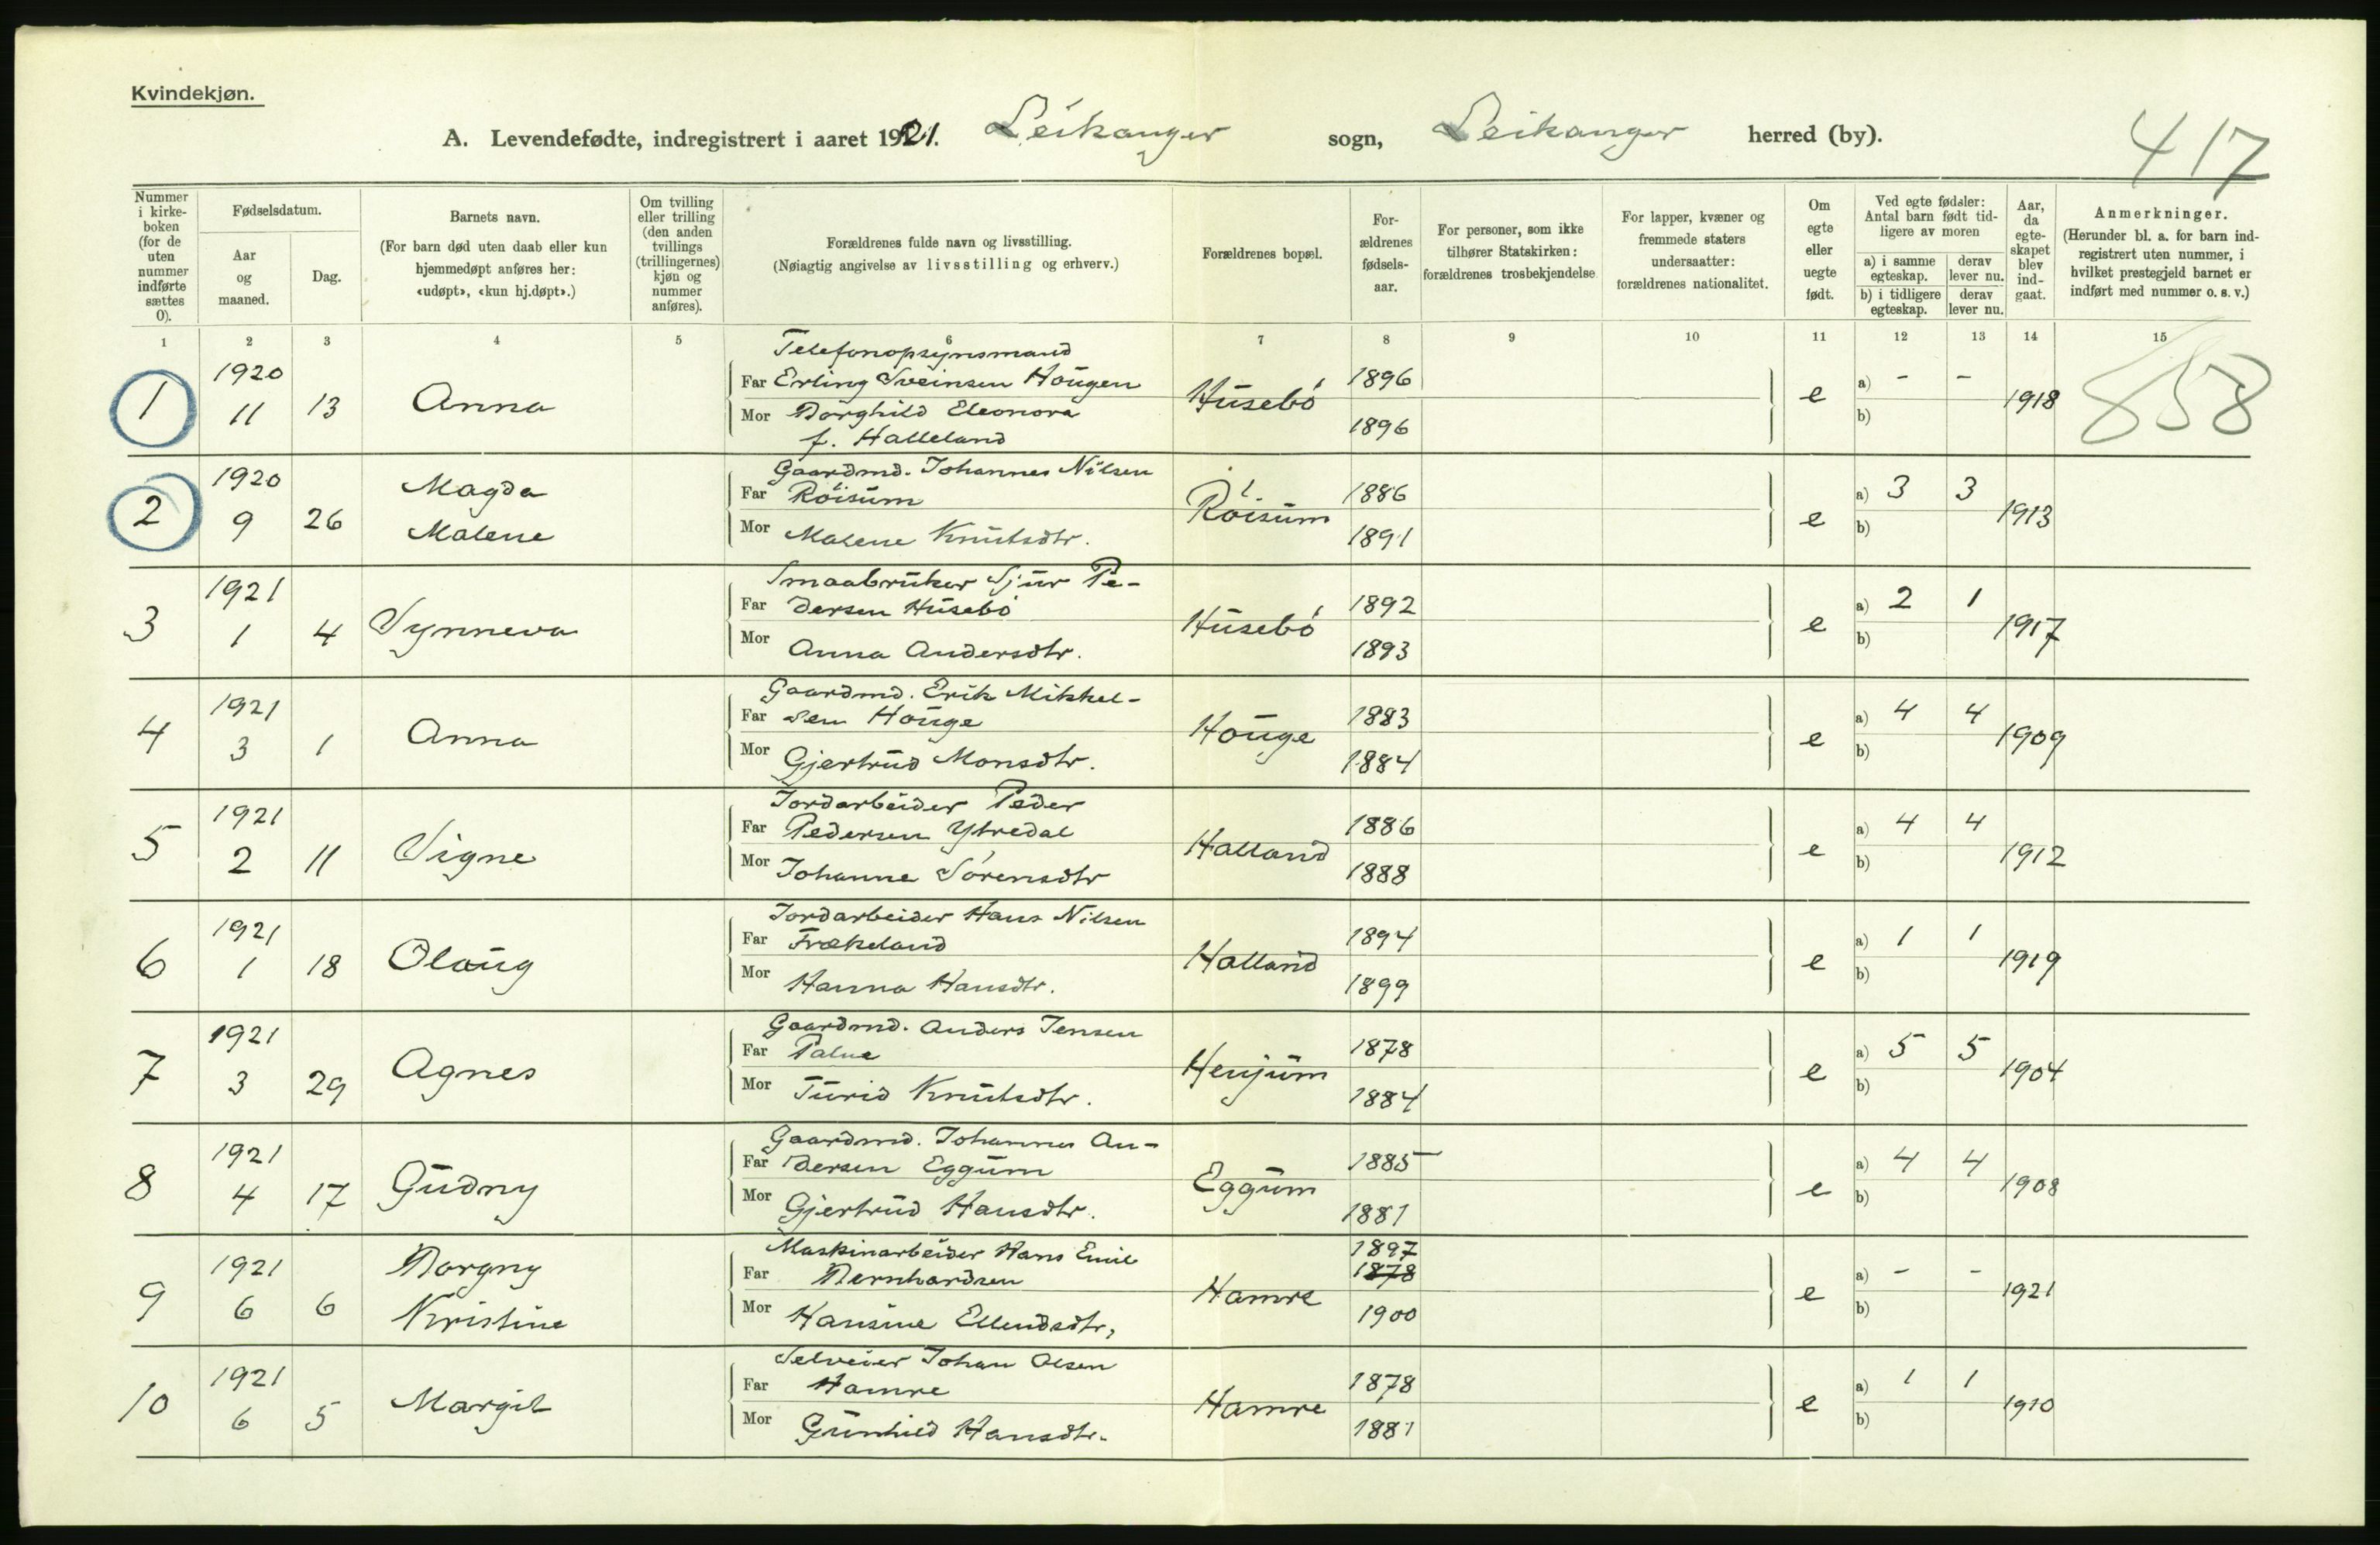 Kvindekjøn.
A. Levendefødte, indregistrert i aaret 1921. Leikanger sogn, Leikanger herred (by).
417
Nummer i kirke-boken (for de uten nummer indførte sættes 0).
Fødselsdatum.
Aar og maaned.
Dag.
Barnets navn.
(For barn død uten daab eller kun hjemmedøpt anføres her: «udøpt», «kun hj.døpt».)
Om tvilling eller trilling (den anden tvillings (trillingernes) kjøn og nummer anføres).
Forældrenes fulde navn og livsstilling.
(Nøiagtig angivelse av livsstilling og erhverv.)
Forældrenes bopæl.
For-ældrenes fødsels-aar.
For personer, som ikke tilhører Statskirken: forældrenes trosbekjendelse.
For lapper, kvæner og fremmede staters undersaatter: forældrenes nationalitet.
Om egte eller uegte født.
Ved egte fødsler: Antal barn født tid-ligere av moren
a) i samme egteskap. derav lever nu.
b) i tidligere egteskap. derav lever nu.
Aar, da egte-skapet blev ind-gaat.
Anmerkninger.
(Herunder bl. a. for barn ind-registrert uten nummer, i hvilket prestegjeld barnet er indført med nummer o. s. v.)
1 2 3 4 5 6 7 8 9 10 11 12 13 14 15
858
1 1920 11 13 Anna
Telefonopsynsmand
Far Erling Sveinsen Hougen
Mor Borghild Eleonora
f. Halleland
Husebö 1896 1896 e a) - - b) 1918
2 1920 9 26 Magda Malene
Gaardmd. Johannes Nilsen
Far Röisum
Mor Malene Knutsdtr.
Röisum 1886 1891 e a) 3 3 b) 1913
3 1921 1 4 Synneva
Smaabruker Sjur Pe-
Far dersen Husebö
Mor Anna Andersdtr.
Husebö 1892 1893 e a) 2 1 b) 1917
4 1921 3 1 Anna
Gaardmd. Erik Mikkel-
Far sen Houge
Mor Gjertrud Monsdtr.
Houge 1883 1884 e a) 4 4 b) 1909
5 1921 2 11 Signe
Jordarbeider Peder
Far Pedersen Ytredal
Mor Johanne Sörensdtr
Halland 1886 1888 e a) 4 4 b) 1912
6 1921 1 18 Olaug
Jordarbeider Hans Nilsen
Far Frækeland
Mor Hanna Hansdtr.
Halland 1894 1899 e a) 1 1 b) 1919
7 1921 3 29 Agnes
Gaardmd. Anders Jensen
Far
Mor Turid Knutsdtr.
Henjum 1878 1884 e a) 5 5 b) 1904
8 1921 4 17 Gudny
Gaardmd. Johannes An-
Far dersen Eggum
Mor Gjertrud Hansdtr.
Eggum 1885 1881 e a) 4 4 b) 1908
9 1921 6 6 Borgny Kristine
Maskinarbeider Hans Emil
Far Bernhardsen
Mor Hansine Ellendsdtr,
Hamre 1897 1878 1900 e a) - - b) 1921
10 1921 6 5 Margit
Selveier Johan Olsen
Far Hamre
Mor Gunhild Hansdtr.
Hamre 1878 1881 e a) 1 1 b) 1910